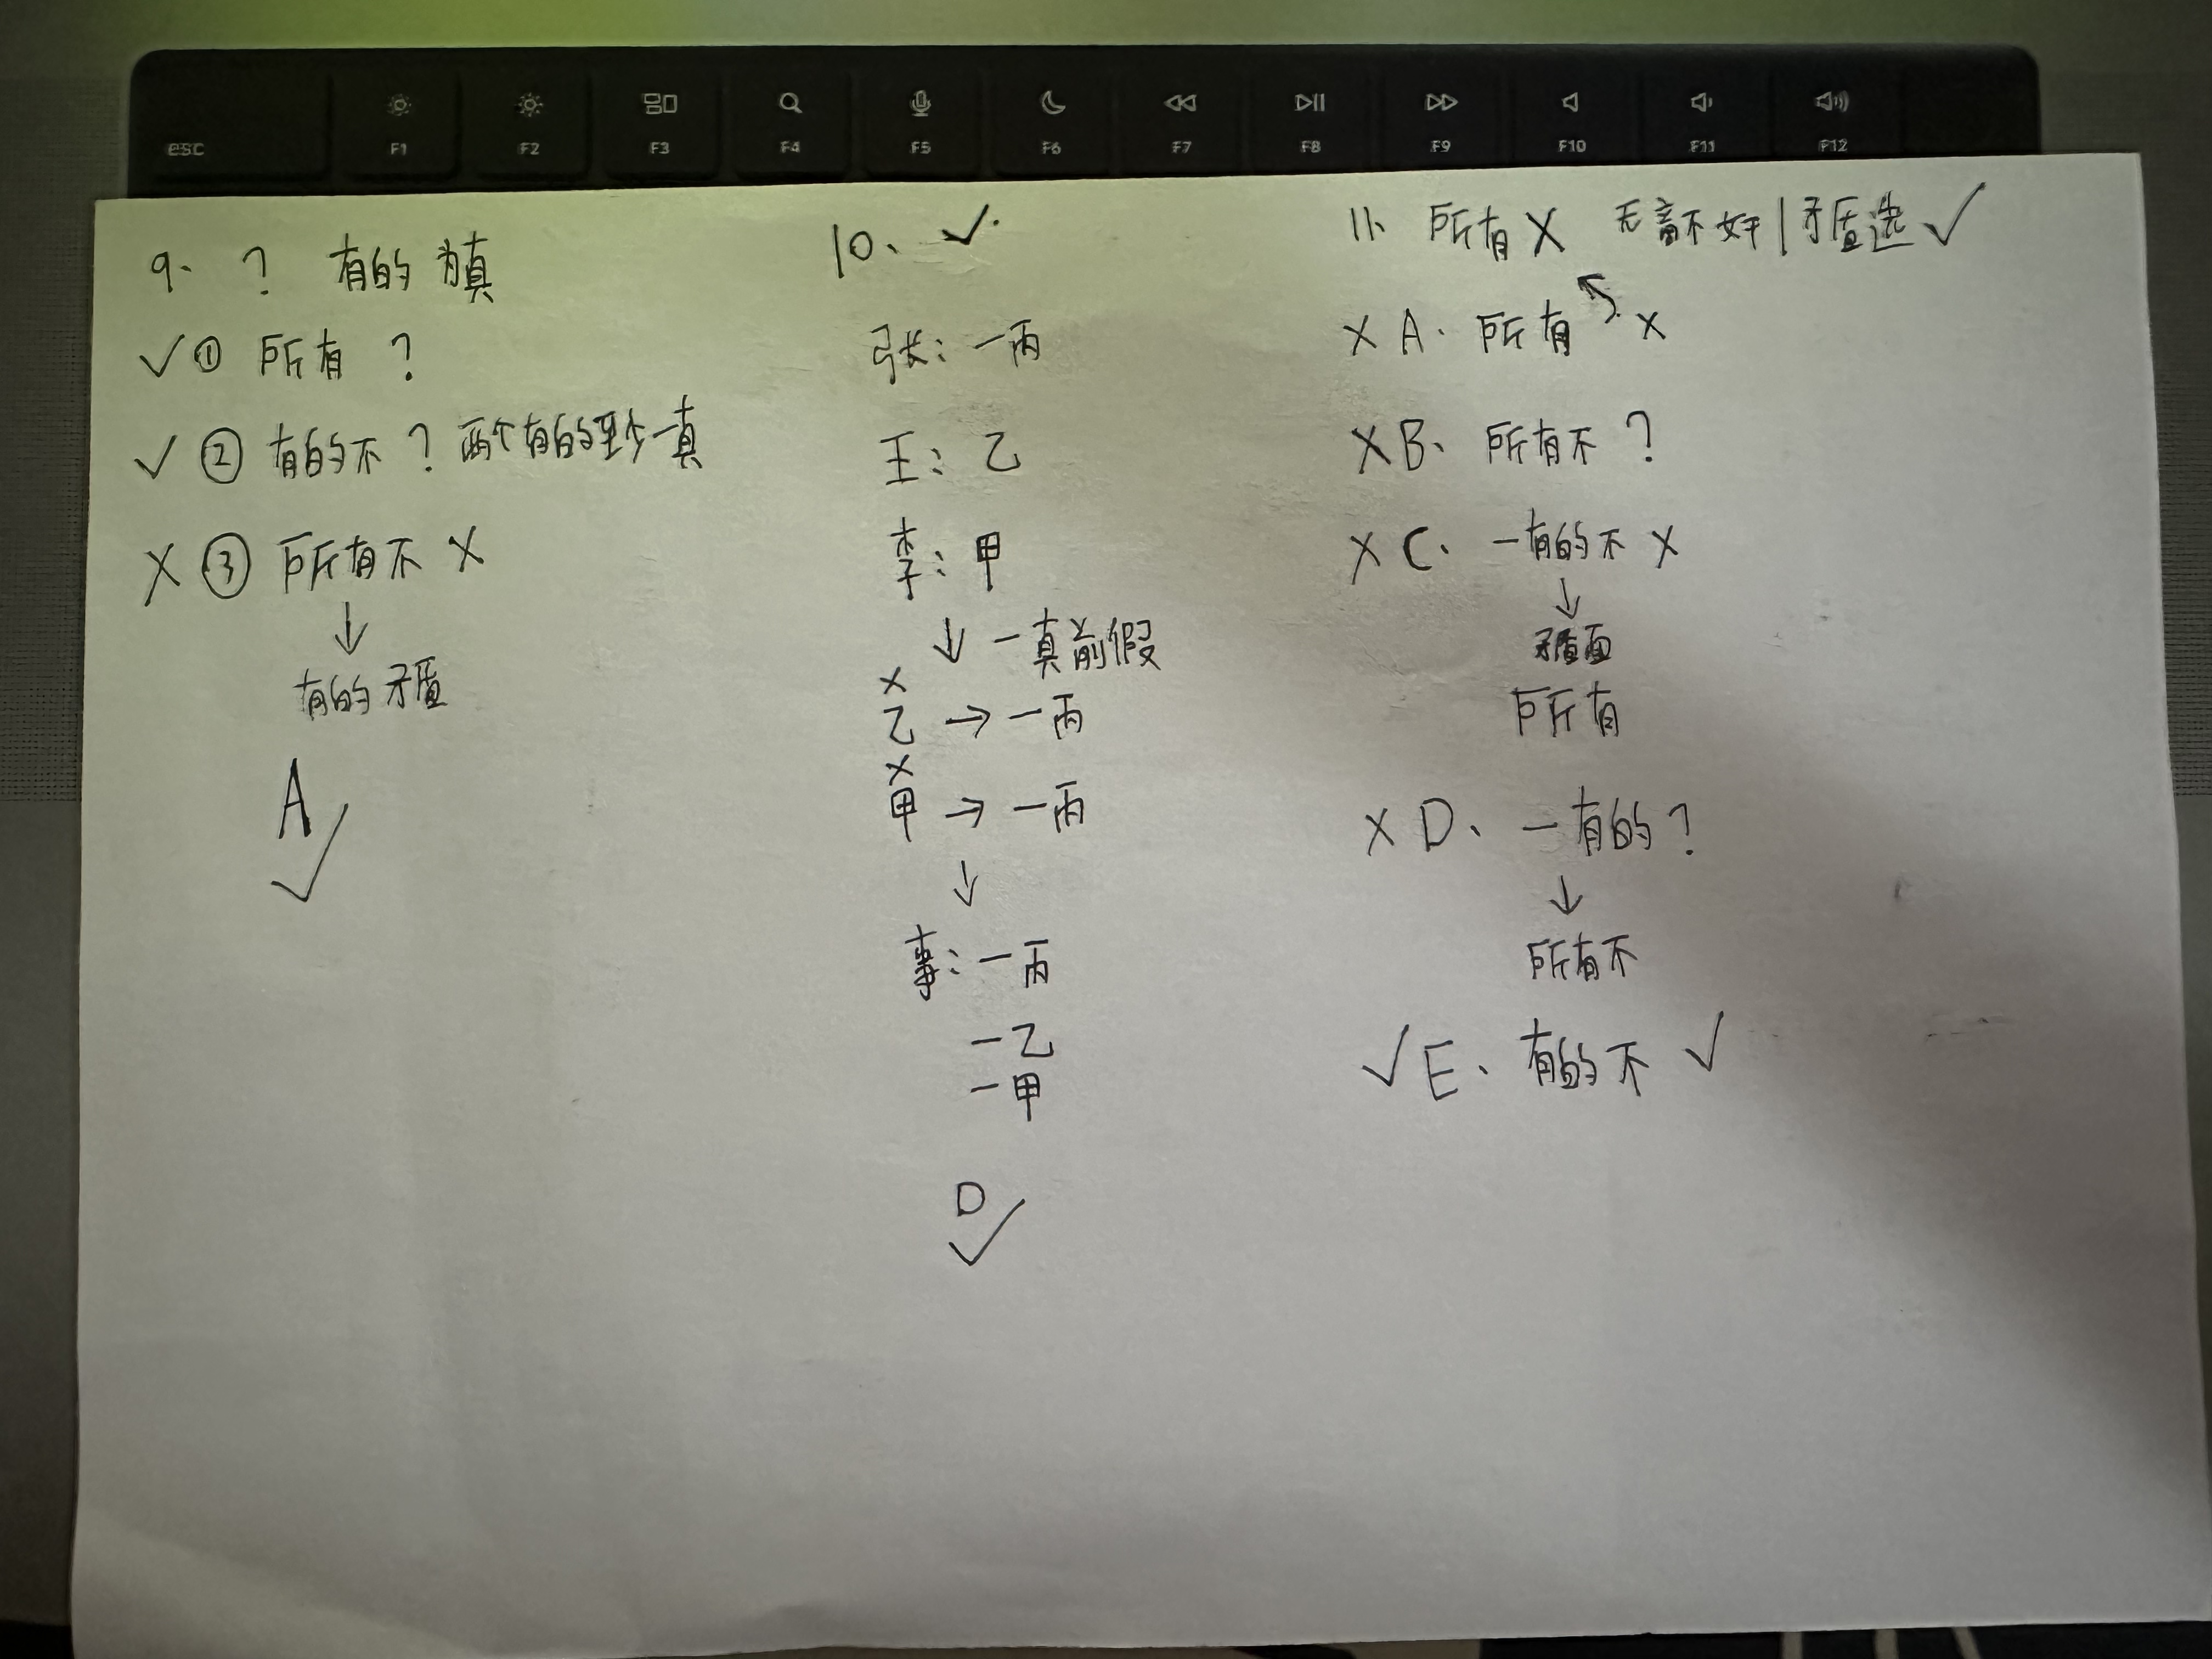 esc F1 F2 F3 F4 F5 F6 F7 F8 F9 F10 F11 F12
9、? 有的为真
✓① 所有 ?
✓② 有的不 ? 两个有的至少一真
X③ 所有不 X
↓
有的矛盾
A✓
10、✓.
张:一丙
王:乙
李:甲
↓一真前假
X
乙→一丙
X
甲→一丙
↓
事:一丙
一乙
一甲
D✓
11、所有X 无 不 | 矛盾选✓
X A. 所有 X
X B、所有不?
X C、一有的不 X
↓
矛盾
所有
X D、一有的?
↓
所有不
✓E、有的不 ✓